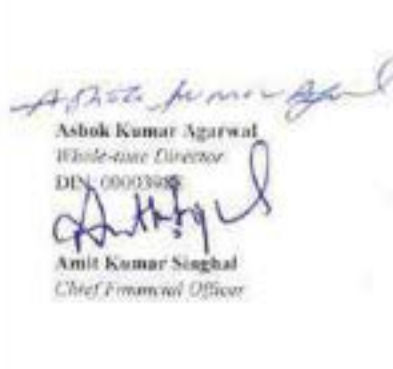 Ashok Kumar Agarwal
Ashok Kumar Agarwal
Whole-time Director
DIN
Amit Kumar Singhal
Chief Financial Officer